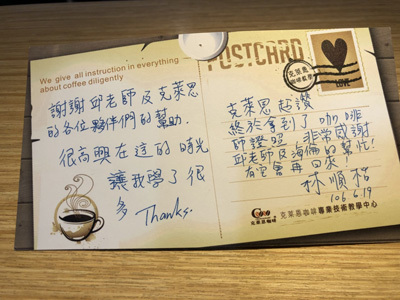 We give all instruction in everything
about coffee diligently
謝謝邱老師及克萊思
的各位夥伴們的幫助.
很高興在這的時光
讓我學了很
多 Thanks.
POSTCARD
LOVE
克萊思超讚
終於拿到了咖啡
師證照 非常感謝
邱老師及海倫的幫忙!
有空會再回來!
林順
106.6.19
克萊思咖啡專業技術教學中心